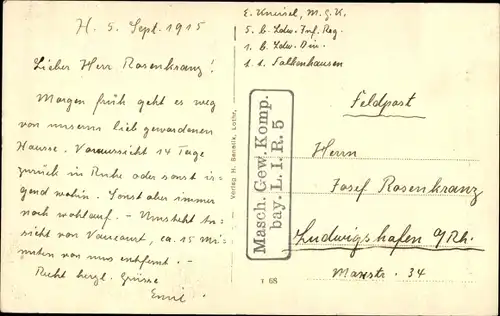 H. 5. Sept. 1915
Lieber Herr Rosenkranz!
Morgen früh geht es weg
von unserm lieb gewordenen
Hause. Voraussicht 14 Tage
zurück in Ruhe oder sonst ir-
gend wohin. Sonst aber immer
noch wohlauf. - Umsteht An-
sicht von Vaucourt, ca. 15 Mi-
nuten von uns entfernt. -
Recht herzl. Grüsse
Emil.
E. Kneisel, M. G. K.
5. b. Ldw. Inf. Reg.
1. b. Ldw. Div.
Falkenhausen
Feldpost
Herrn
Josef Rosenkranz
Ludwigshafen a/Rh.
Maxstr. 34
Masch. Gew. Komp.
bay. L. I. R. 5
Verlag H. Benedik, Lothr.
1 68